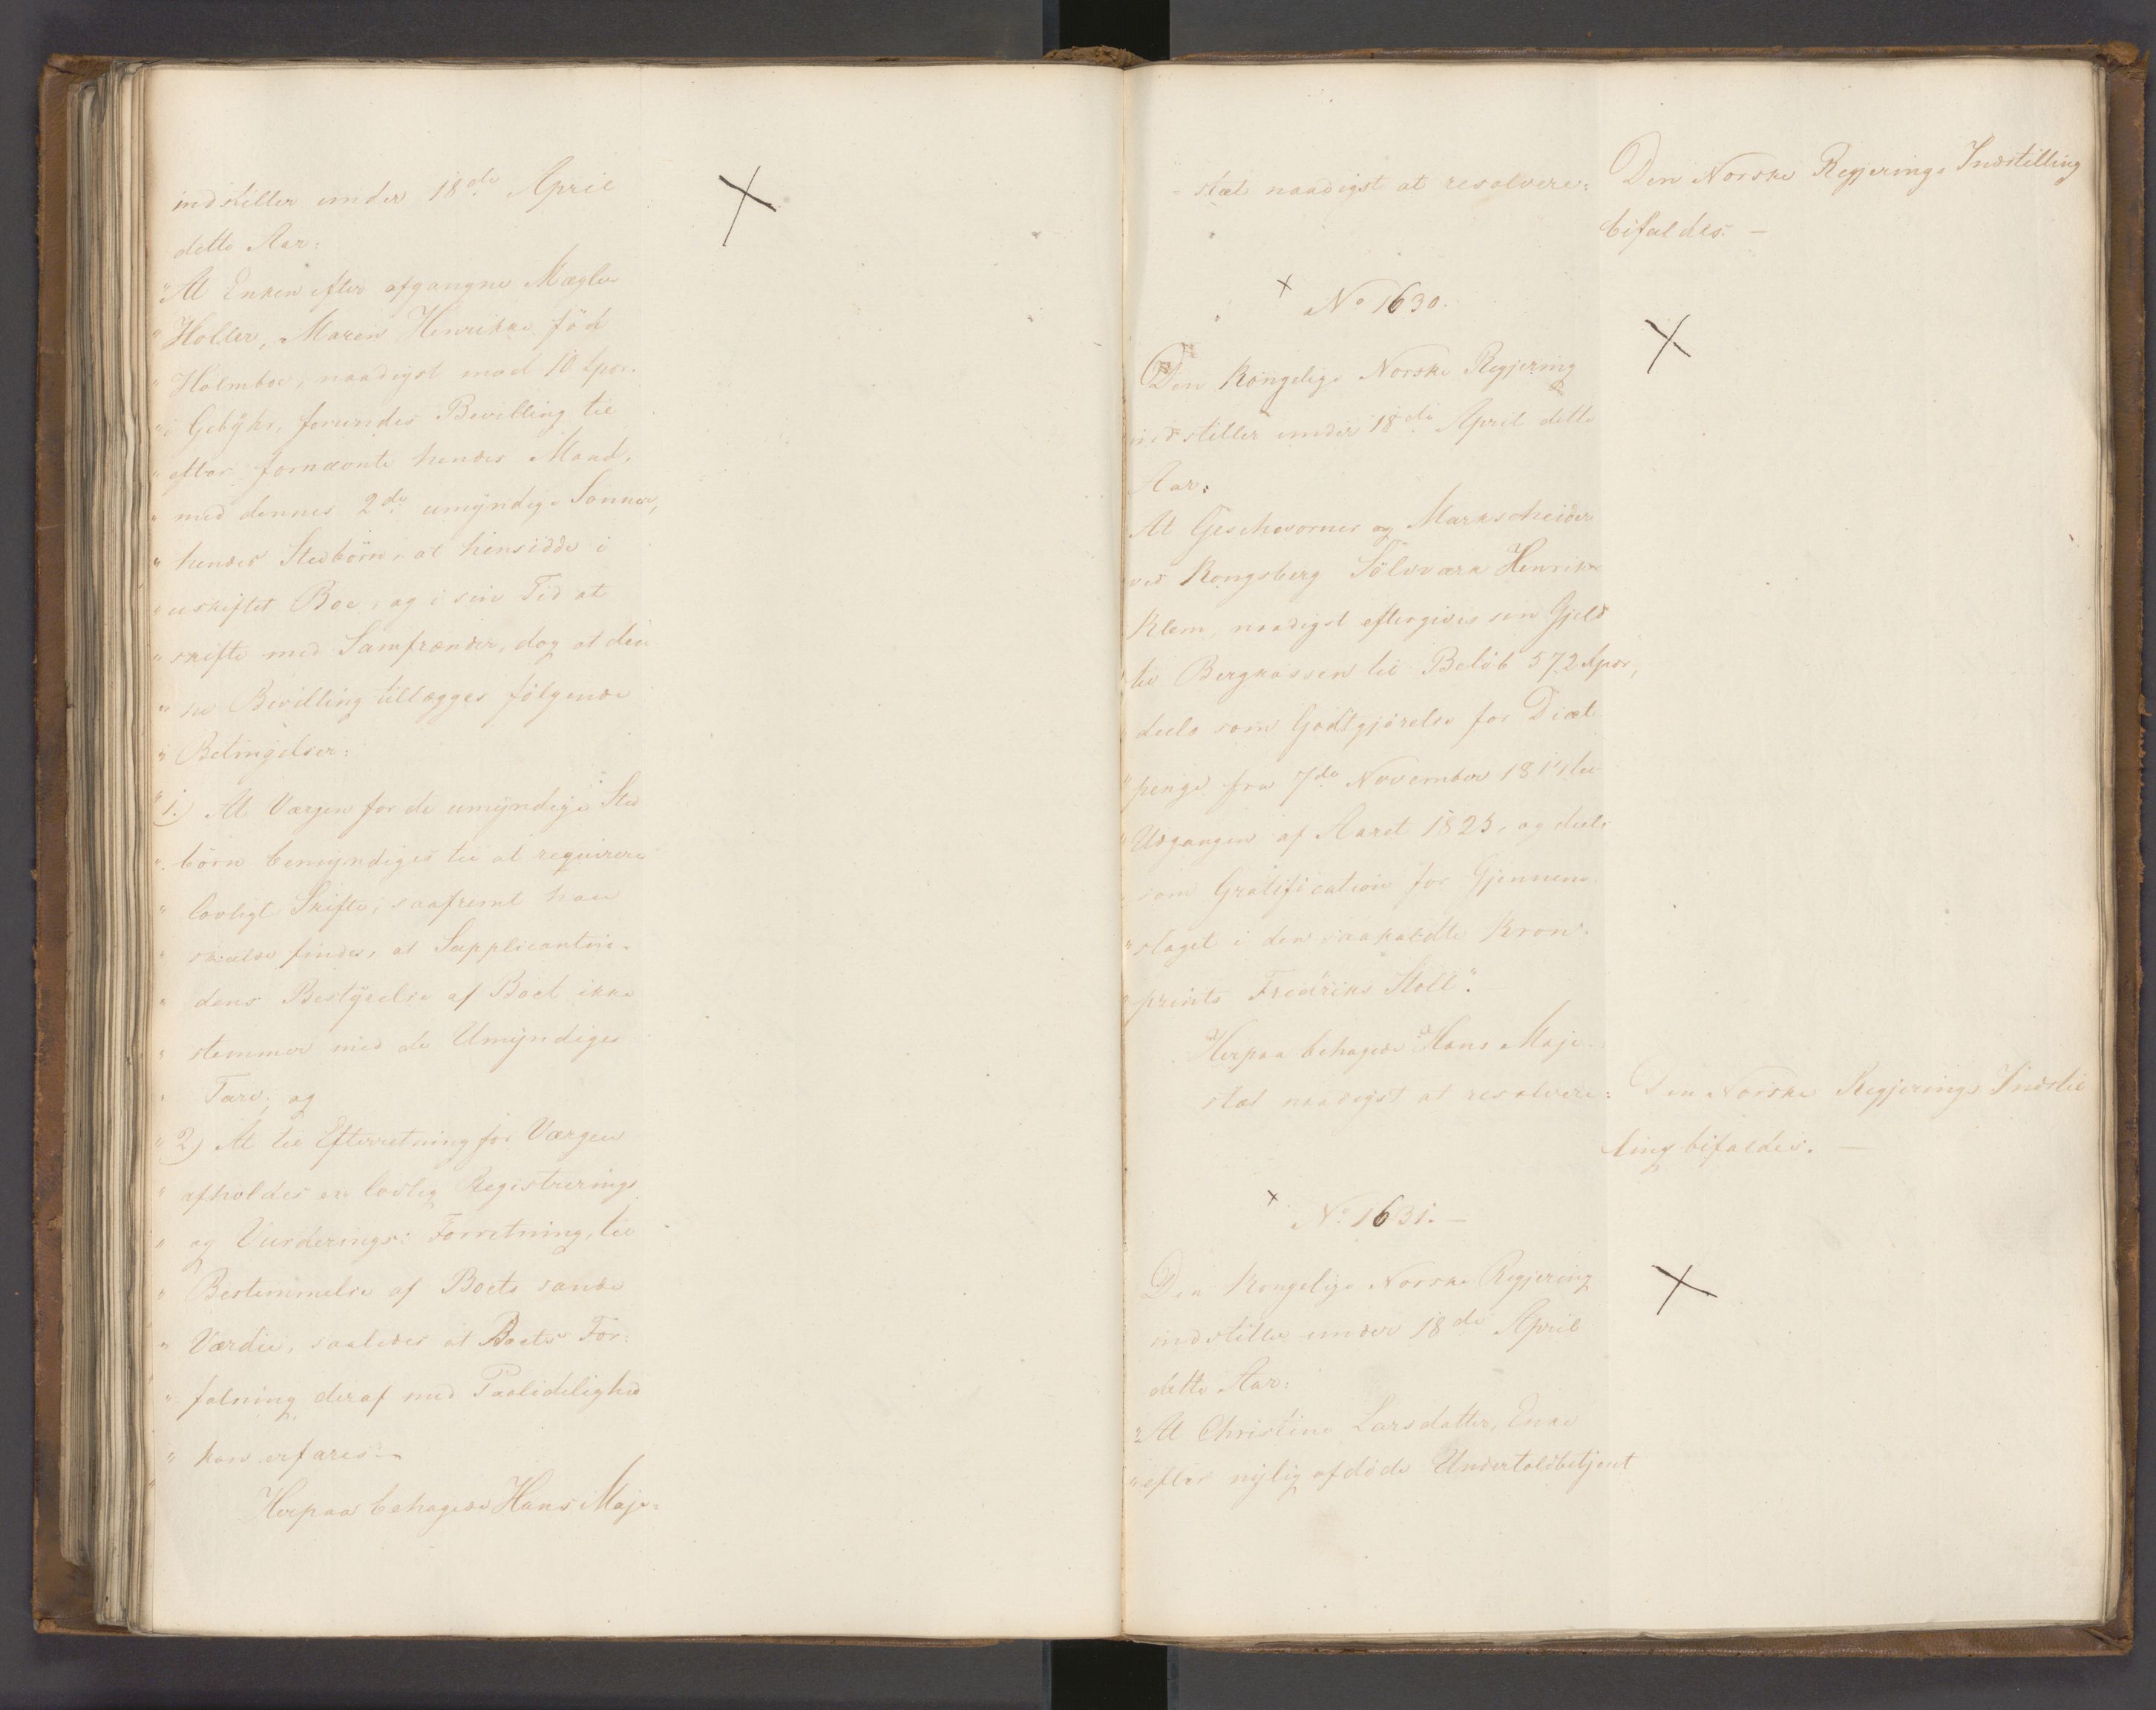 indstiller under 18de April
dette Aar:
"At Enken efter afgangne Mægler
" Holler, Maren Henrikke født
" Holmboe, naadigst mod 10 Spdr.
" i Gebyhr, forundes Bevilling til
" efter fornævnte hendes Mand,
" med dennes 2de umyndige Sønner,
" hendes Stedbørn, at hensidde i
" uskiftet Boe, og i sin Tid at
" skifte med Samfrænder, dog at den
" ne Bevilling tillægges følgende
" Betingelser:
" 1.) At Værgen for de umyndige Sted
" børn bemyndiges til at requirere
" lovligt Skifte, saafremt han
" skulde finde, at Supplicantin-
" dens Bestyrelse af Boet ikke
" stemmer med de Umyndiges
" Tarv; og
" 2) At til Efterretning for Værgen
" afholdes en lovlig Registrerings
" og Vurderings: Forretning, til
" Bestemmelse af Boets sande
" Værdie, saaledes at Boets For-
" fatning deraf med Paalidelighed
" kan erfares" —
Herpaa behagede Hans Maje-
- stæt naadigst at resolvere:
Den Norske Regjerings Indstilling
bifaldes. —
No 1630.
Den Kongelige Norske Regjering
indstiller under 18de April dette
Aar:
At Geschworner og Markscheider
ved Kongsberg Sölvværk Henrik
Klem, naadigst eftergives sin Gjeld
til Bergkassen til Beløb 572 Spdr,
deels som Godtgjørelse for Diæt
" penge fra 7de November 1814 til
" Udgangen af Aaret 1823, og deels
" som Gratification for Gjennem-
" slaget i den saakaldte Kron-
" prints Fredriks Stoll".
Herpaa behagede Hans Maje-
stæt naadigst at resolvere:
Den Norske Regjerings Indstil
ling bifaldes. —
No 1631. —
Den Kongelige Norske Regjering
indstiller under 18de April
dette Aar:
"At Christine Larsdatter, Enke
" efter nylig afdøde Undertoldbetjent